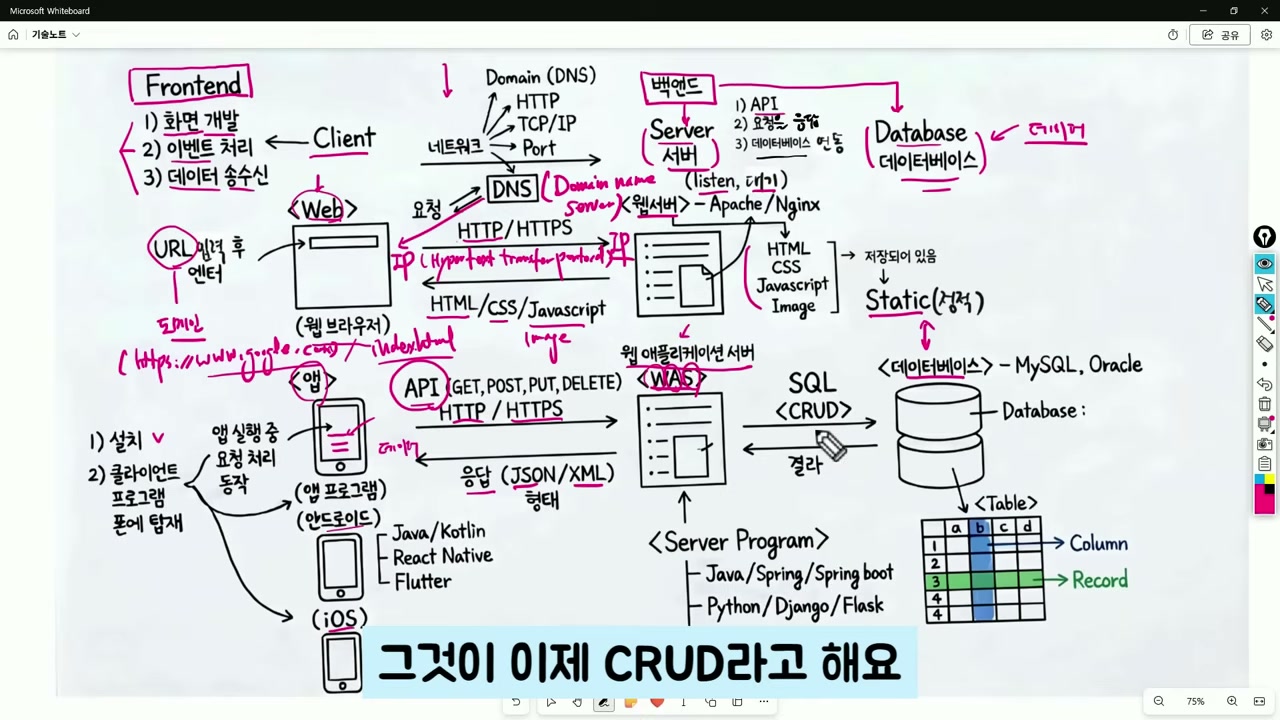 Microsoft Whiteboard
기술노트
공유
Frontend
1) 화면 개발
2) 이벤트 처리
3) 데이터 송수신
Client
<Web>
URL 입력 후
엔터
도메인
(https://www.google.com)/index.html
(웹 브라우저)
Domain (DNS)
HTTP
TCP/IP
Port
네트워크
DNS
(Domain name
server)
요청
HTTP/HTTPS
IP
IP
HTML/CSS/Javascript
Image
백앤드
Server
서버
1) API
2) 요청을 응답
3) 데이터베이스 연동
(listen, 대기)
<웹서버> - Apache/Nginx
HTML
CSS
Javascript
Image
저장되어 있음
Static(정적)
Database
데이터베이스
데이터
<앱>
1) 설치
2) 클라이언트
프로그램
폰에 탑재
앱 실행 중
요청 처리
동작
(앱 프로그램)
(안드로이드)
Java/Kotlin
React Native
Flutter
(iOS)
API (GET, POST, PUT, DELETE)
HTTP / HTTPS
데이터
응답 (JSON/XML)
형태
웹 애플리케이션 서버
<WAS>
SQL
<CRUD>
결과
<Server Program>
Java/Spring/Spring boot
Python/Django/Flask
<데이터베이스> - MySQL, Oracle
Database :
<Table>
a b c d
1
2
3
4
4
Column
Record
그것이 이제 CRUD라고 해요
75%